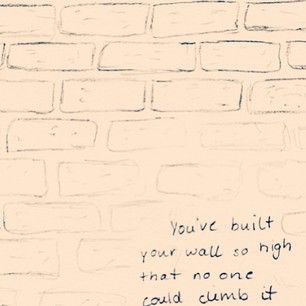 You've built
your wall so high
that no one
could climb it